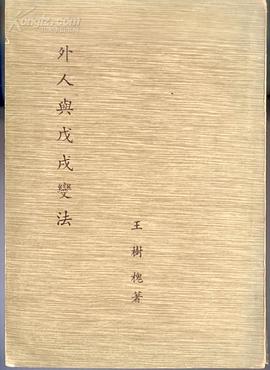 外人與戊戌變法
王樹槐著
Kongfz.com